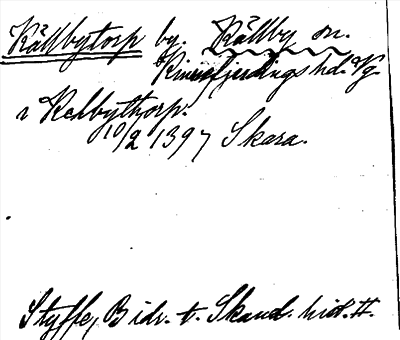 Källbytorp by. Källby sn.
Kinnefjerdings hd. Vg.
i Kelbythorp.
10/2 1397 Skara.
Styffe, Bidr. t. Skand. hist. II.